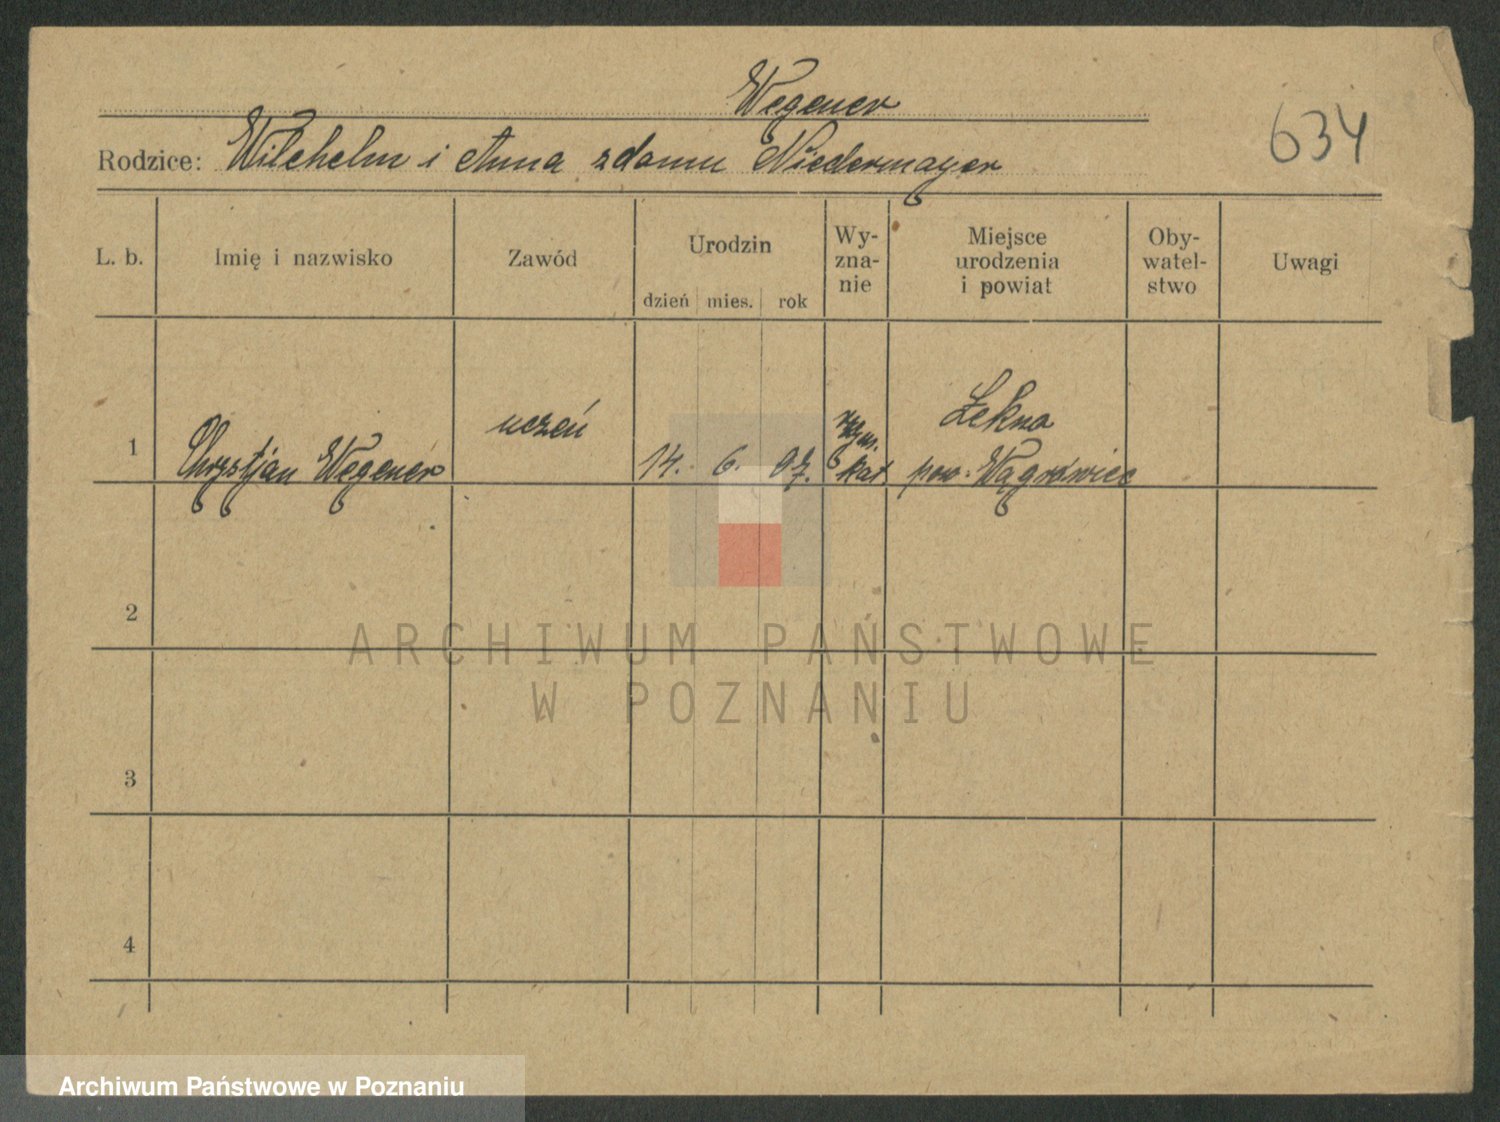 Wegener
634
Rodzice: Wilchelm i Anna z domu Niedermayer
L. b.
Imię i nazwisko
Zawód
Urodzin
dzień mies. rok
Wy-
zna-
nie
Miejsce
urodzenia
i powiat
Oby-
watel-
stwo
Uwagi
1
Chrystjan Wegener
uczeń
14. 6. 07.
rzym.
kat.
Łekna
pow. Wągrówiec
2
3
4
ARCHIWUM PAŃSTWOWE
W POZNANIU
Archiwum Państwowe w Poznaniu